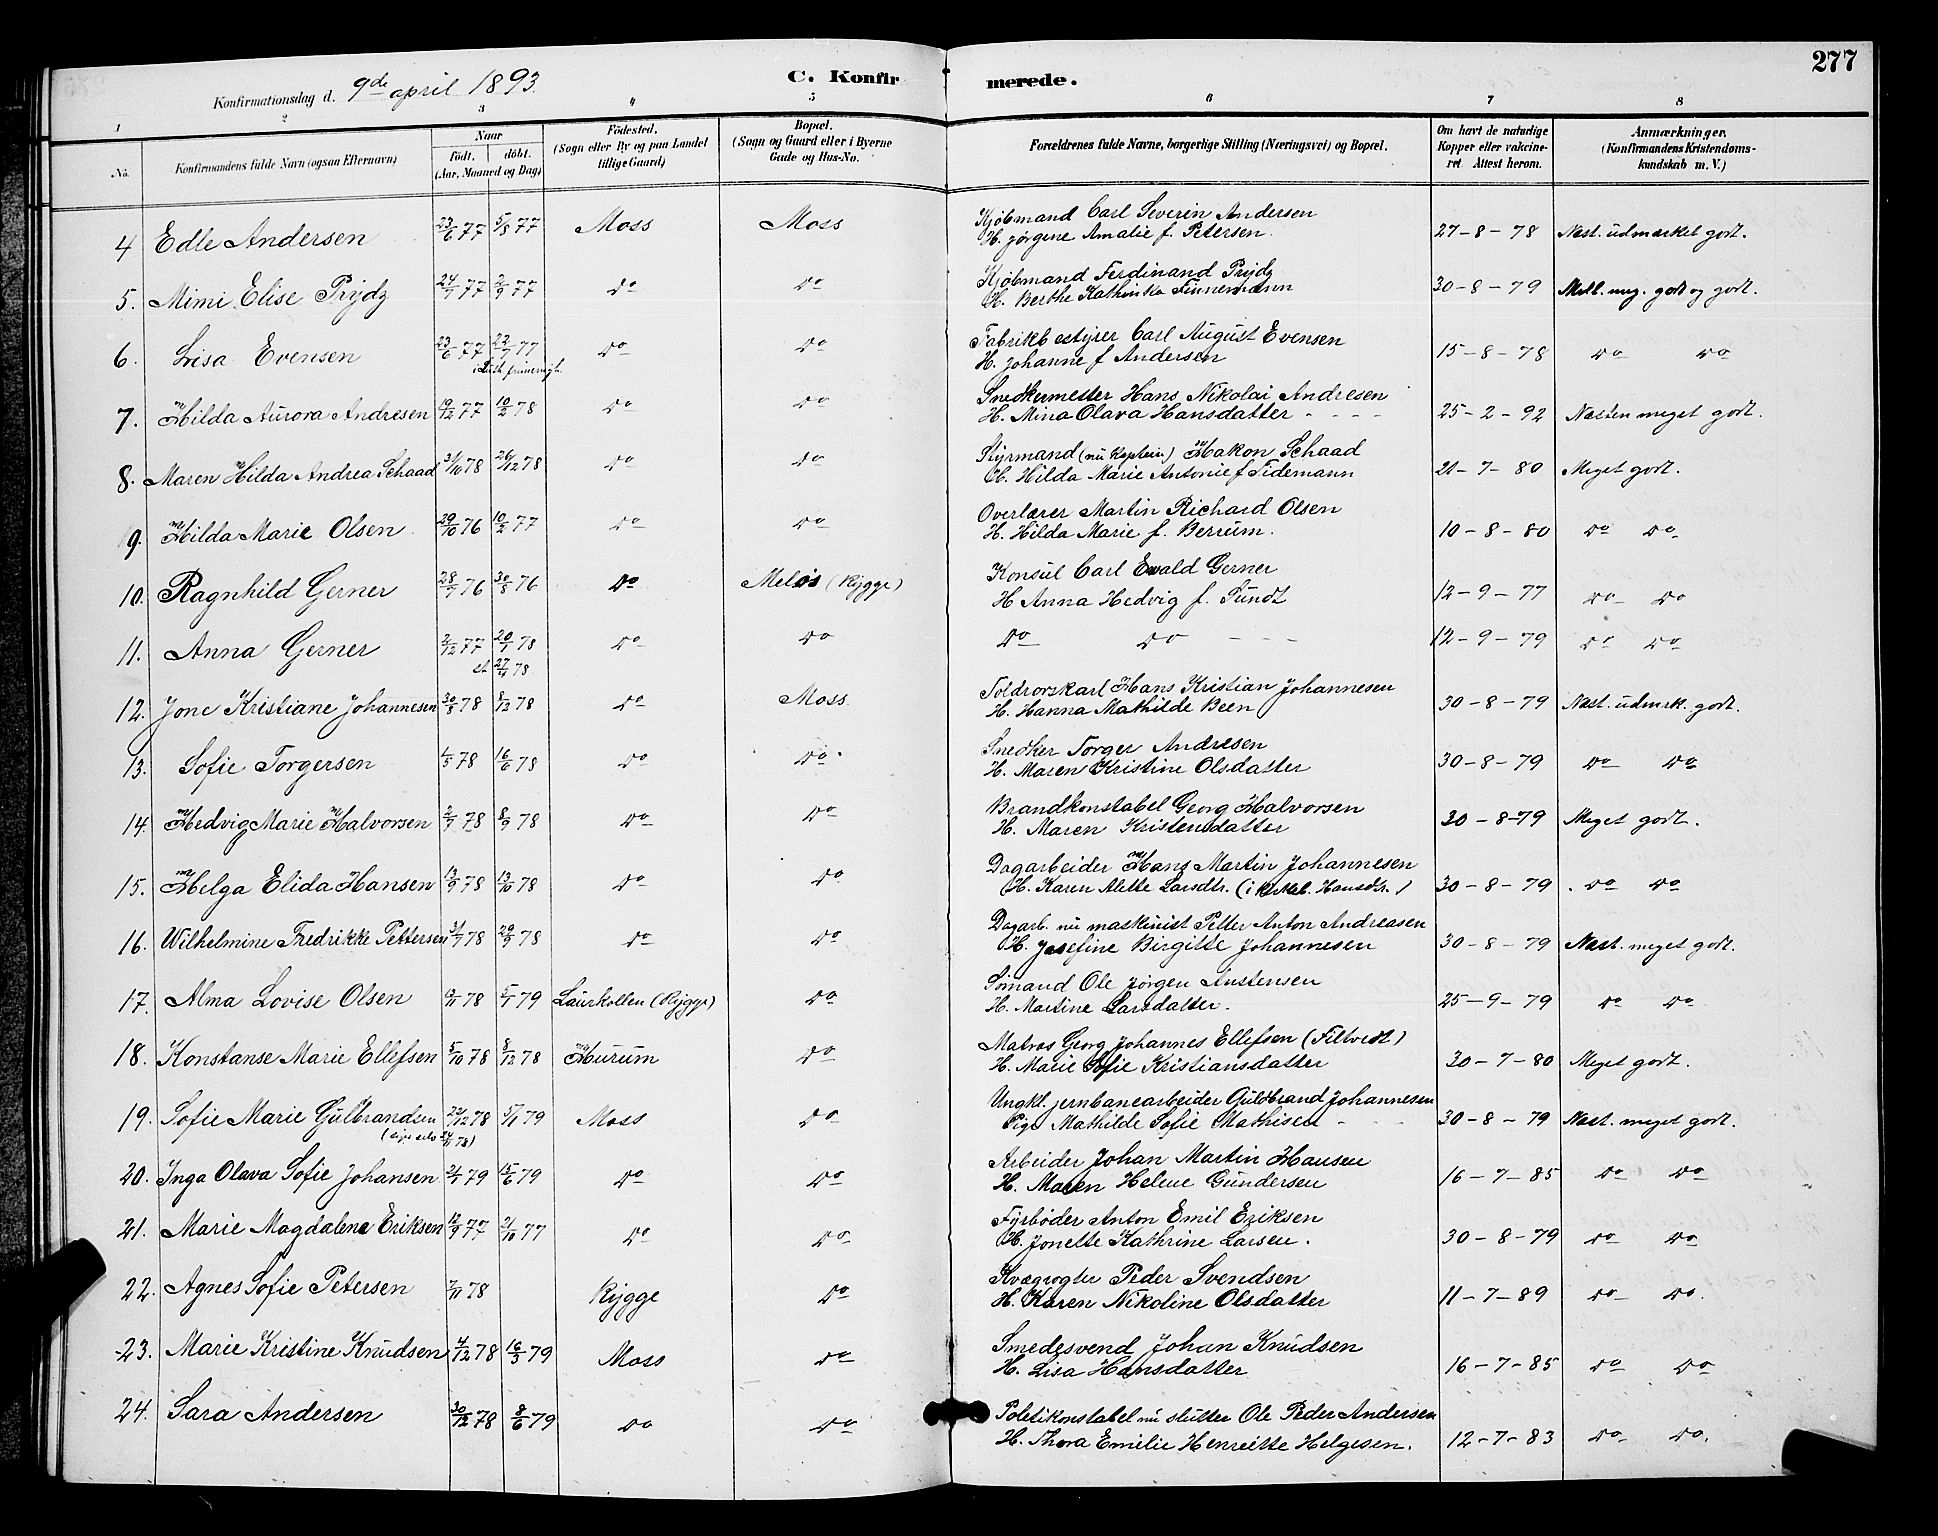 277
C. Konfirmerede.
Konfirmationsdag d. 9de april 1893.
1 2 3 4 5 6 7 8
No. Konfirmandens fulde Navn (ogsaa Efternavn) Naar født, døbt. (Aar, Maaned og Dag) Fødested. (Sogn eller By og paa Landet tillige Gaard) Bopæl. (Sogn og Gaard eller i Byerne Gade og Hus-No. Forældrenes fulde Navne, borgerlige Stilling (Næringsvei) og Bopæl. Om havt de naturlige Kopper eller vakcineret. Attest herom. Anmærkninger. (Konfirmandens Kristendomskundskab m. V.)
4 Edle Andersen 23/6 77 5/8 77 Moss Moss Kjøbmand Carl Severin Andersen
H. Jørgene Amalie f. Petersen. 27-8-78 Næst. udmærket godt.
5. Mimi Elise Prydz 24/7 77 2/9 77 Do Do Kjøbmand Ferdinand Prydz
H. Berthe Kathinka Finnemann 30-8-79 Mell. meg. godt og godt.
6. Lisa Evensen 23/6 77 22/7 77 Do Do Fabrikbestyrer Carl August Evensen
H. Johanne f Andersen 15-8-78 Do Do
7. Hilda Aurora Andresen 19/12 77 10/2 78 Do Do Snedkermester Hans Nikolai Andresen
H. Mina Olava Hansdatter - - - - 25-2-92 Næsten meget godt.
8. Maren Hilda Andrea Schaad 31/10 78 26/12 78 Do Do Styrmand (nu Kaptein) Hakon Schaad
H. Hilda Marie Antonie f Tidemann 21-7-80 Meget godt.
9. Hilda Marie Olsen 29/10 76 10/2 77 Do Do Overlærer Martin Richard Olsen
H. Hilda Marie f. Berrum. 10-8-80 Do Do
10. Ragnhild Gerner 28/7 76 30/8 76 Do Meløs (Rygge) Konsul Carl Ewald Gerner
H Anna Hedvig f. Sundt 12-9-77 Do Do
11. Anna Gerner 2/12 77 20/1 78 Do Do Do Do - - - 12-9-79 Do Do
27/4 78
12. Jone Kristiane Johannesen 30/8 78 8/12 78 Do Moss Toldrorskarl Hans Kristian Johannesen
H. Hanna Mathilde Been 30-8-79 Næst. udmrk. godt.
13. Sofie Torgersen 1/5 78 16/6 78 Do Do Snedker Torger Andresen
H. Maren Kristine Olsdatter 30-8-79 Do Do
14 Hedvig Marie Halvorsen 2/7 78 8/9 78 Do Do Brandkonstabel Georg Halvorsen
H. Maren Kristensdatter 30-8-79 Meget godt.
15. Helga Elida Hansen 13/9 78 13/10 78 Do Do Dagarbeider Hans Martin Johannesen
H. Karen Alette Larsdtr. 30-8-79 Do Do
16. Wilhelmine Fredrikke Pettersen 31/7 78 29/9 78 Do Do Dagarb. nu maskinist Petter Anton Andreasen
H. Josefine Birgitte Johannesen 30-8-79 Næst. meget godt.
17. Alma Lovise Olsen 78 5/1 79 Laurkollen (Rygge) Do Sømand Ole Jørgen Austensen
H. Martine Larsdatter. 25-9-79 Do Do
18. Konstanse Marie Ellefsen 5/10 78 8/12 78 Hurum Do Matros Georg Johannes Ellefsen (Filtvedt)
H. Marie Sofie Kristiansdatter 30-7-80 Meget godt.
19. Sofie Marie Gulbrandsen 78 79 Moss Do Ungkl. jernbanearbeider Guldbrand Johannesen
Pige Mathilde Sofie Mathisen - - - 30-8-79 Næst. meget godt.
20. Inga Olava Sofie Johansen 21/1 79 15/6 79 Do Do Arbeider Johan Martin Hansen
H. Maren Helene Gundersen 16-7-85 Do Do
21. Marie Magdalene Eriksen 12/9 77 21/10 77 Do Do Fyrbøder Anton Emil Eriksen
H. Jonette Kathrine Larsen. 30-8-79 Do Do
22. Agnes Sofie Petersen 7/11 78 Rygge Do Kvægrøgter Peder Svendsen
H. Karen Nikoline Olsdatter 11-7-89 Do Do.
23. Marie Kristine Knudsen 4/12 78 16/3 79 Moss Do Smedesvend Johan Knudsen
H. Lisa Hansdatter 16-7-85 Do Do
24. Sara Andersen 30/12 78 8/6 79 Do Do Politikonstabel nu slutter Ole Peder Andersen
H. Thora Emilie Henriette Helgesen. 12-7-83 Do Do.